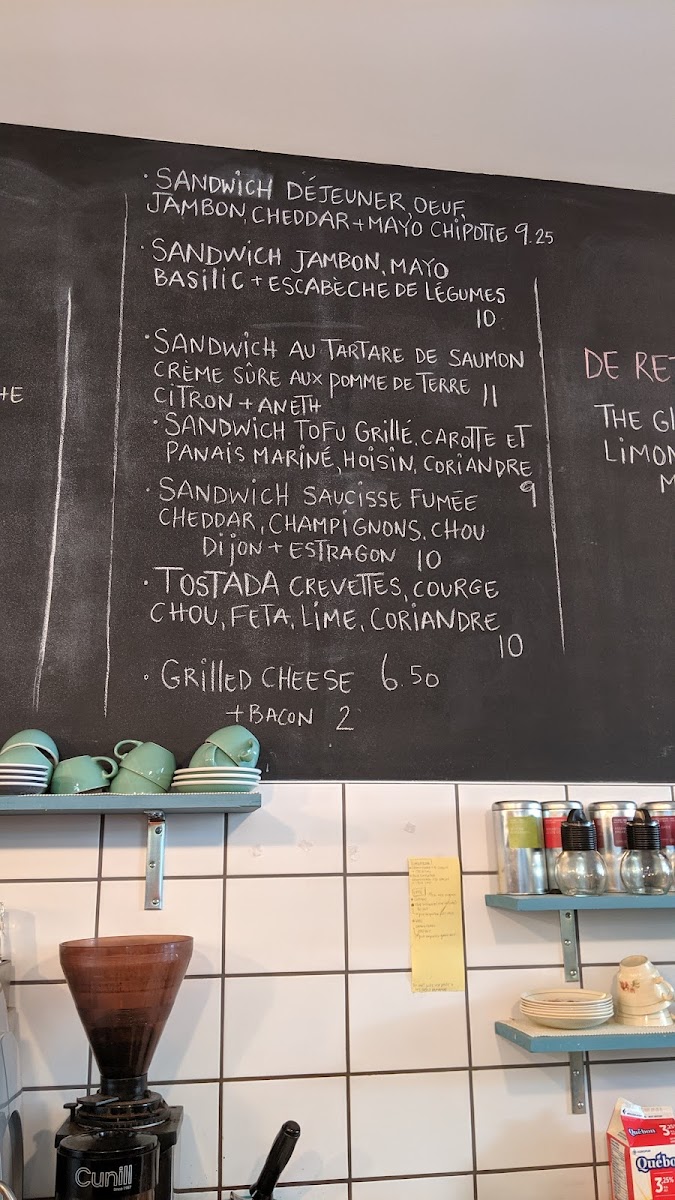 · SANDWICH DÉJEUNER, OEUF,
JAMBON, CHEDDAR + MAYO CHIPOTIE 9.25
· SANDWICH JAMBON, MAYO
BASILIC + ESCABÈCHE DE LÉGUMES
10
· SANDWICH AU TARTARE DE SAUMON
CRÈME SÛRE AUX POMME DE TERRE 11
CITRON + ANETH
· SANDWICH TOFU GRILLÉ, CAROTTE ET
PANAIS MARINÉ, HOISIN, CORIANDRE
9
· SANDWICH SAUCISSE FUMÉE
CHEDDAR, CHAMPIGNONS, CHOU
DIJON + ESTRAGON 10
· TOSTADA CREVETTES, COURGE
CHOU, FETA, LIME, CORIANDRE
10
· GRILLED CHEESE 6.50
+ BACON 2
DE RET
THE GL
LIMON
M
Cunill
Québon
3
Québo
3.25